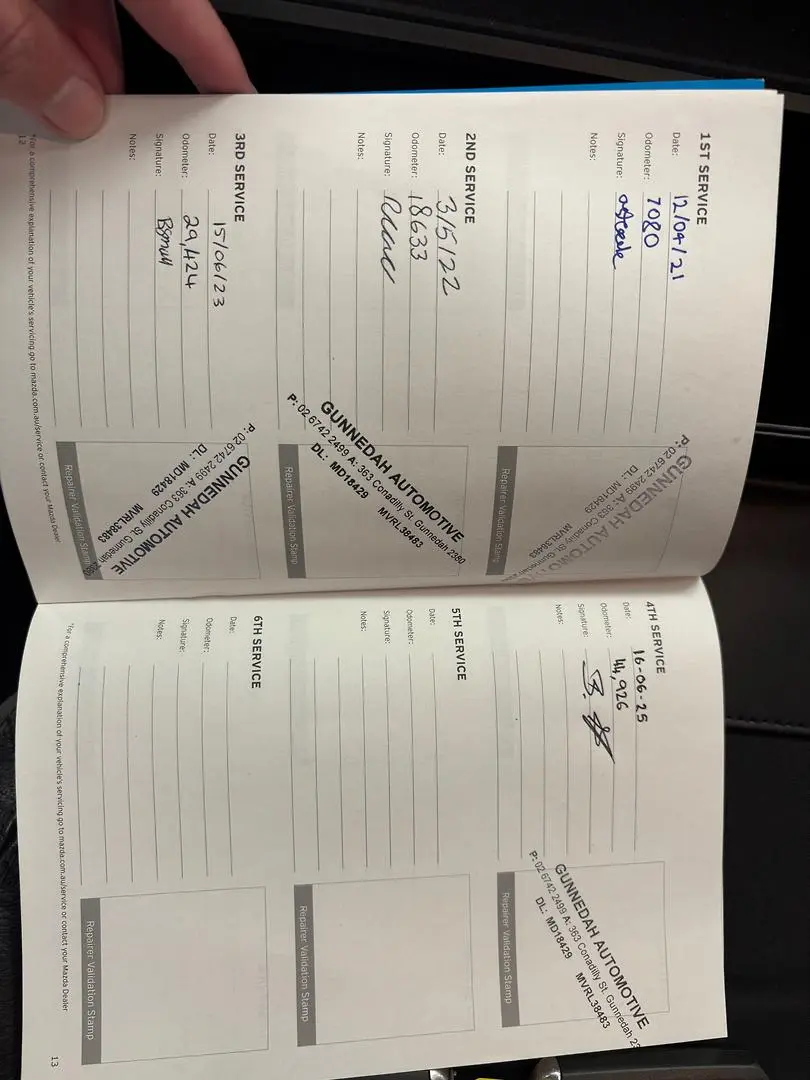 1ST SERVICE
Date: 12/04/21
Odometer: 7080
Signature:
Notes:
P: 02 6742 2499 A: 363 Conadilly St. Gunnedah
GUNNEDAH AUTOMOTIVE
DL: MD18429 MVRL38483
Repairer Validation Stamp
2ND SERVICE
Date: 3/5/22
Odometer: 18633
Signature:
Notes:
GUNNEDAH AUTOMOTIVE
P: 02 6742 2499 A: 363 Conadilly St. Gunnedah 2380
DL: MD18429 MVRL38483
Repairer Validation Stamp
3RD SERVICE
Date: 15/06/23
Odometer: 29,424
Signature:
Notes:
P: 02 6742 2499 A: 363 Conadilly St. Gunnedah 2380
GUNNEDAH AUTOMOTIVE
DL: MD18429 MVRL38483
Repairer Validation Stamp
*For a comprehensive explanation of your vehicle's servicing go to mazda.com.au/service or contact your Mazda Dealer
12
4TH SERVICE
Date: 16-06-25
Odometer: 44,926
Signature:
Notes:
GUNNEDAH AUTOMOTIVE
P: 02 6742 2499 A: 363 Conadilly St. Gunnedah 23
DL: MD18429 MVRL38483
Repairer Validation Stamp
5TH SERVICE
Date:
Odometer:
Signature:
Notes:
Repairer Validation Stamp
6TH SERVICE
Date:
Odometer:
Signature:
Notes:
Repairer Validation Stamp
*For a comprehensive explanation of your vehicle's servicing go to mazda.com.au/service or contact your Mazda Dealer
13